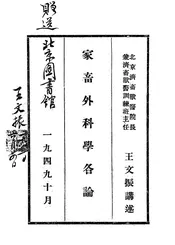 北京濟畜獸醫院長
兼濟畜獸醫訓練班主任
王文振講述
家畜外科學各論
一九四九十月
贈送
北京圖書館
王文振